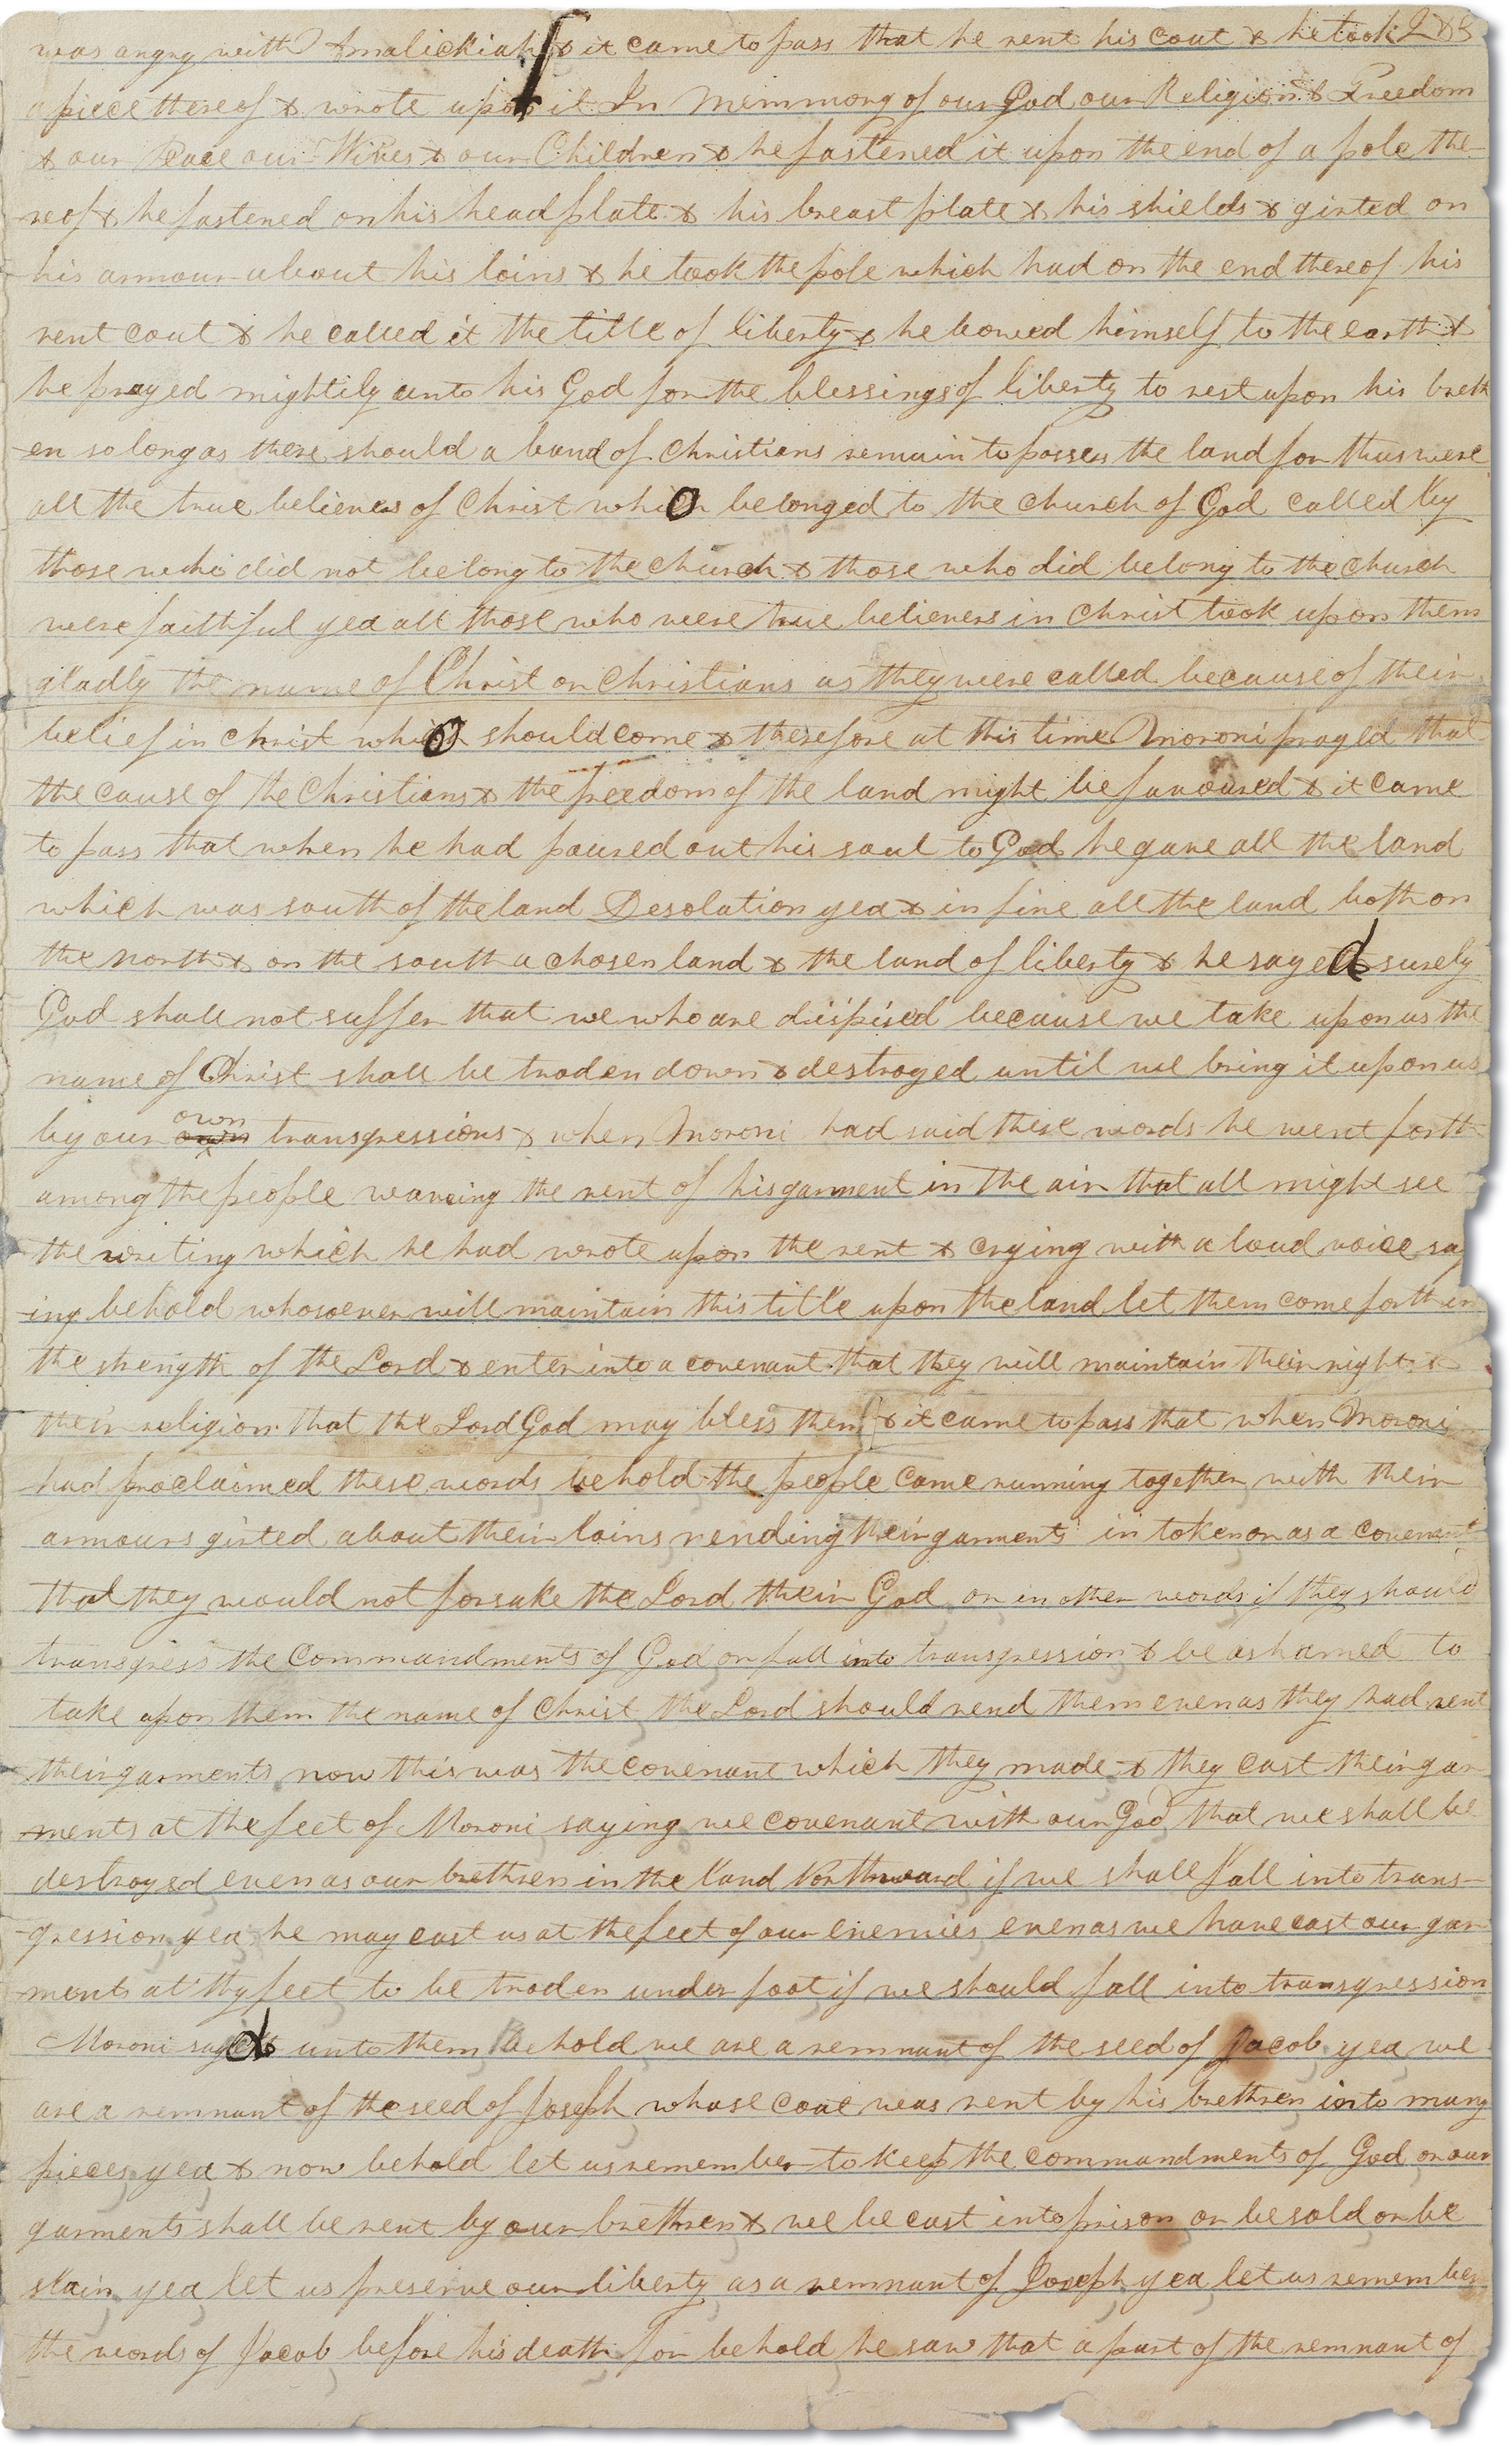 was angry with Amalickiah & it came to pass that he rent his coat & he took
a piece thereof & wrote upon it In Memmory of our God our Religion & Freedom
& our Peace our Wives & our Children & he fastened it upon the end of a pole the-
reof & he fastened on his headplate & his breast plate & his shields & girted on
his armour about his loins & he took the pole which had on the end thereof his
rent coat & he called it the title of liberty & he bowed himself to the earth &
he prayed mightily unto his God for the blessings of liberty to rest upon his breth
-en so long as there should a band of Christians remain to possess the land for thus were
all the true believers of Christ who belonged to the church of God called by
those who did not belong to the church & those who did belong to the church
were faithful yea all those who were true believers in Christ took upon them
gladly the name of Christ or Christians as they were called because of their
belief in Christ who should come & therefore at this time Moroni prayed that
the cause of the Christians & the freedom of the land might be favoured & it came
to pass that when he had poured out his soul to God he gave all the land
which was south of the land Desolation yea & in fine all the land both on
the north & on the south a chosen land & the land of liberty & he sayed surely
God shall not suffer that we who are dispised because we take upon us the
name of Christ shall be troden down & destroyed until we bring it upon us
by our own transgressions & when Moroni had said these words he went forth
among the people waveing the rent of his garment in the air that all might see
the writing which he had wrote upon the rent & crying with a loud voice say
-ing behold whosoever will maintain this title upon the land let them come forth in
the strength of the Lord & enter into a covenant that they will maintain their rights &
their religion that the Lord God may bless them & it came to pass that when Moroni
had proclaimed these words behold the people came running together with their
armours girted about their loins rending their garments in token or as a covenant
that they would not forsake the Lord their God or in other words if they should
transgress the commandments of God or fall into transgression & be ashamed to
take upon them the name of Christ the Lord should rend them even as they had rent
their garments now this was the covenant which they made & they cast their gar
-ments at the feet of Moroni saying we covenant with our God that we shall be
destroyed even as our brethren in the land Northward if we shall fall into trans-
-gression yea he may cast us at the feet of our enemies even as we have cast our gar
-ments at thy feet to be troden under foot if we should fall into transgression
Moroni sayed unto them behold we are a remnant of the seed of Jacob yea we
are a remnant of the seed of Joseph whose coat was rent by his brethren into many
pieces yea & now behold let us remember to keep the commandments of God or our
garments shall be rent by our brethren & we be cast into prison or be sold or be
slain yea let us preserve our liberty as a remnant of Joseph yea let us remember
the words of Jacob before his death for behold he saw that a part of the remnant of